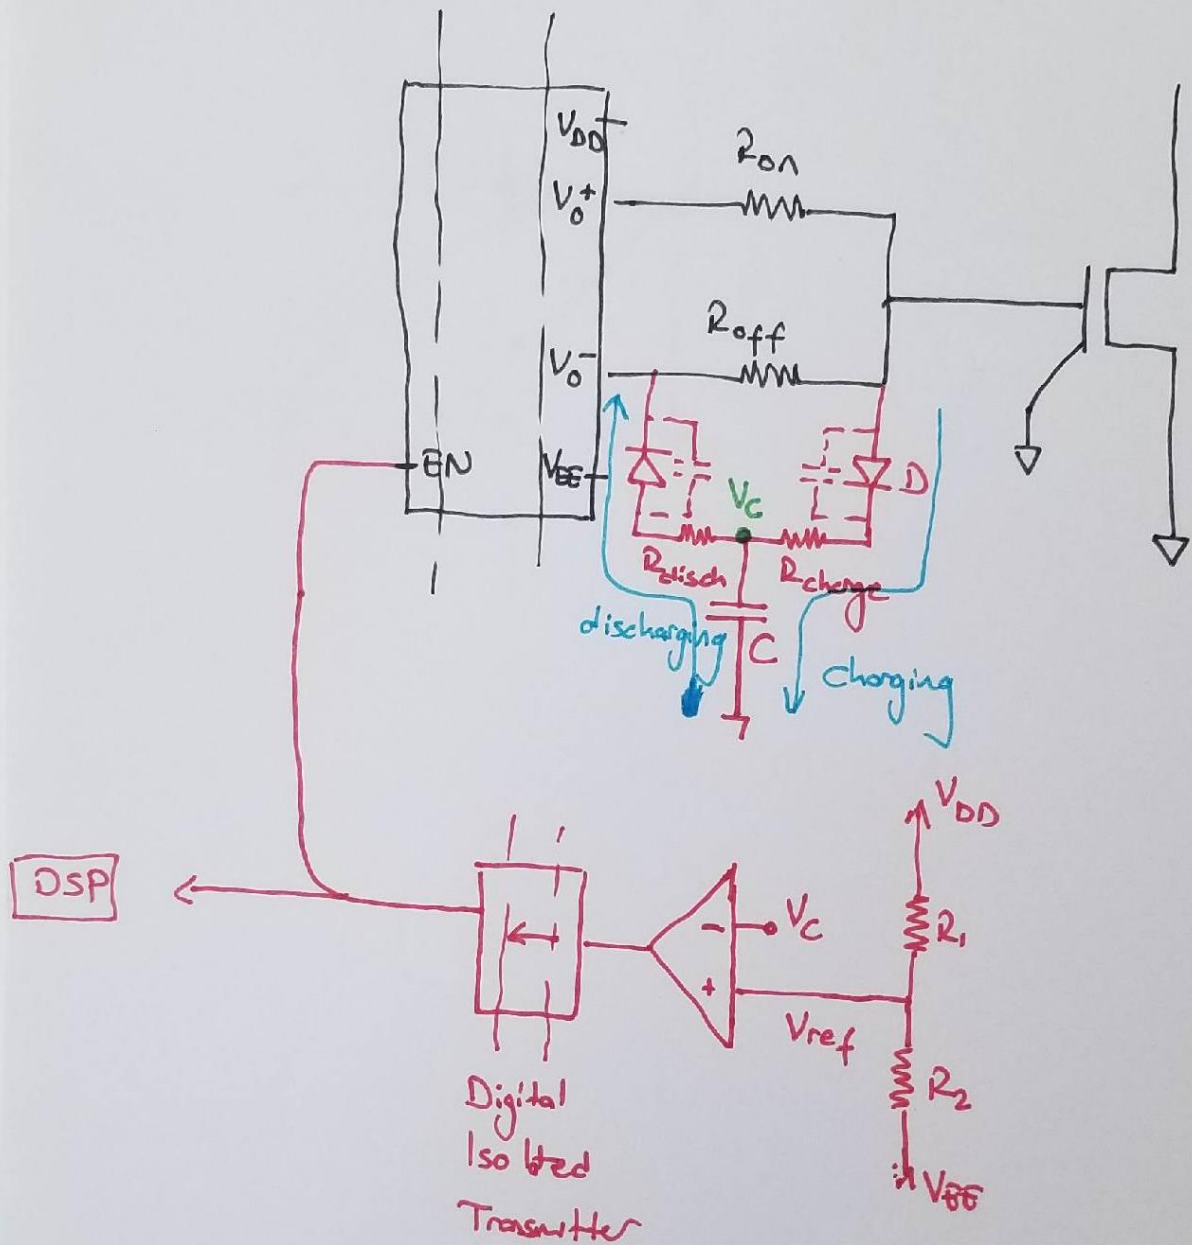 VDD
Ron
Vo+
Roff
Vo-
EN
VEE
VC
D
Rdisch
Rcharge
discharging
C
Charging
VDD
DSP
VC
R1
Vref
R2
VEE
Digital
Isolated
Transmitter